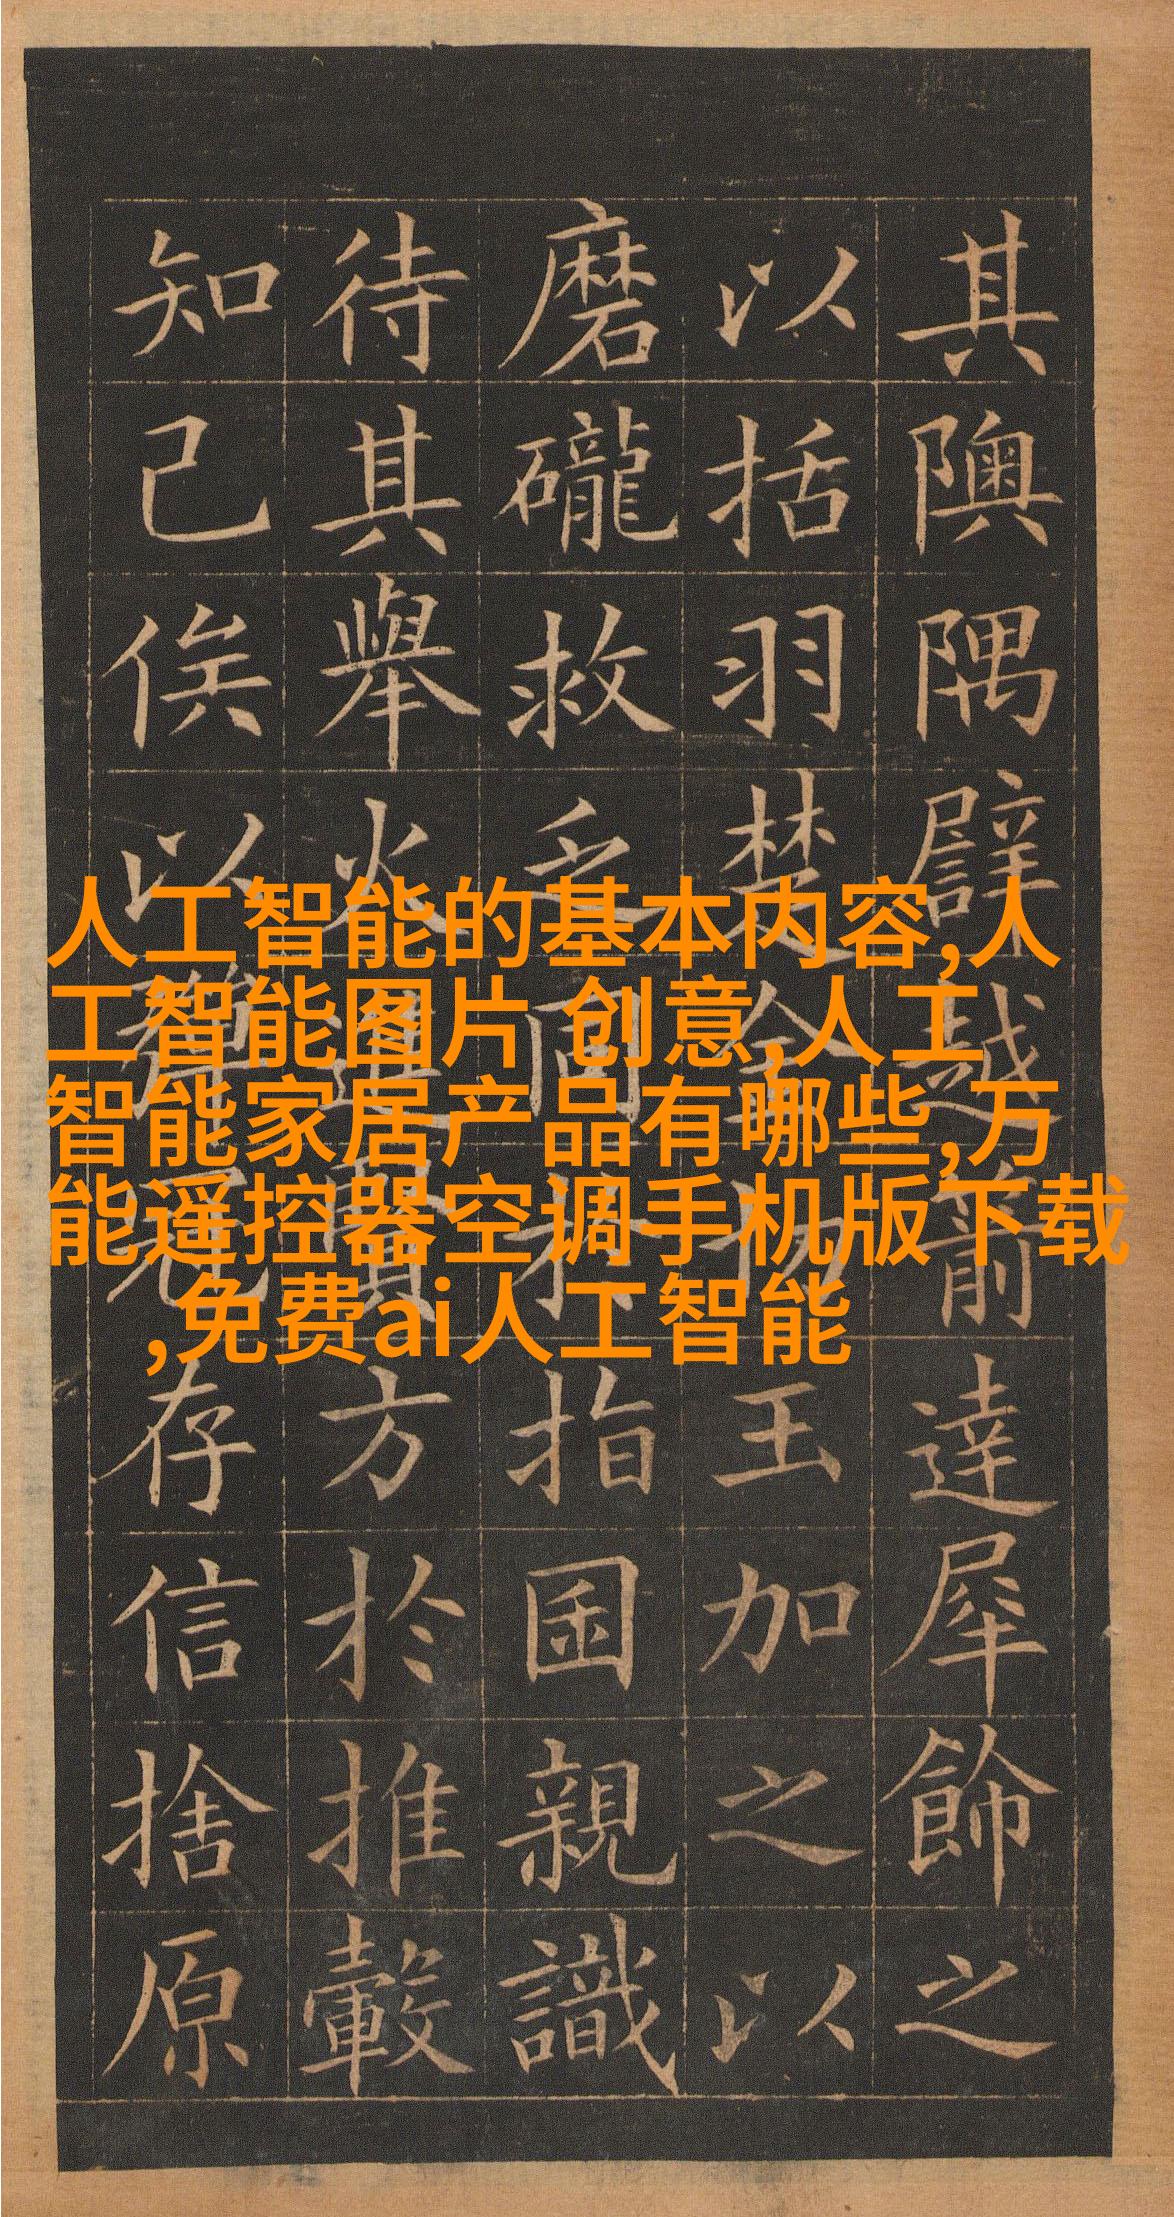 其隩隅譬越箭達犀飾之
以括羽楚金切玉加之以
磨礲救乏同於指囷親識
待其舉火進賢方於推轂
知己俟以彈冠存信捨原
人工智能的基本内容,人
工智能图片 创意,人工
智能家居产品有哪些,万
能遥控器空调手机版下载
,免费ai人工智能